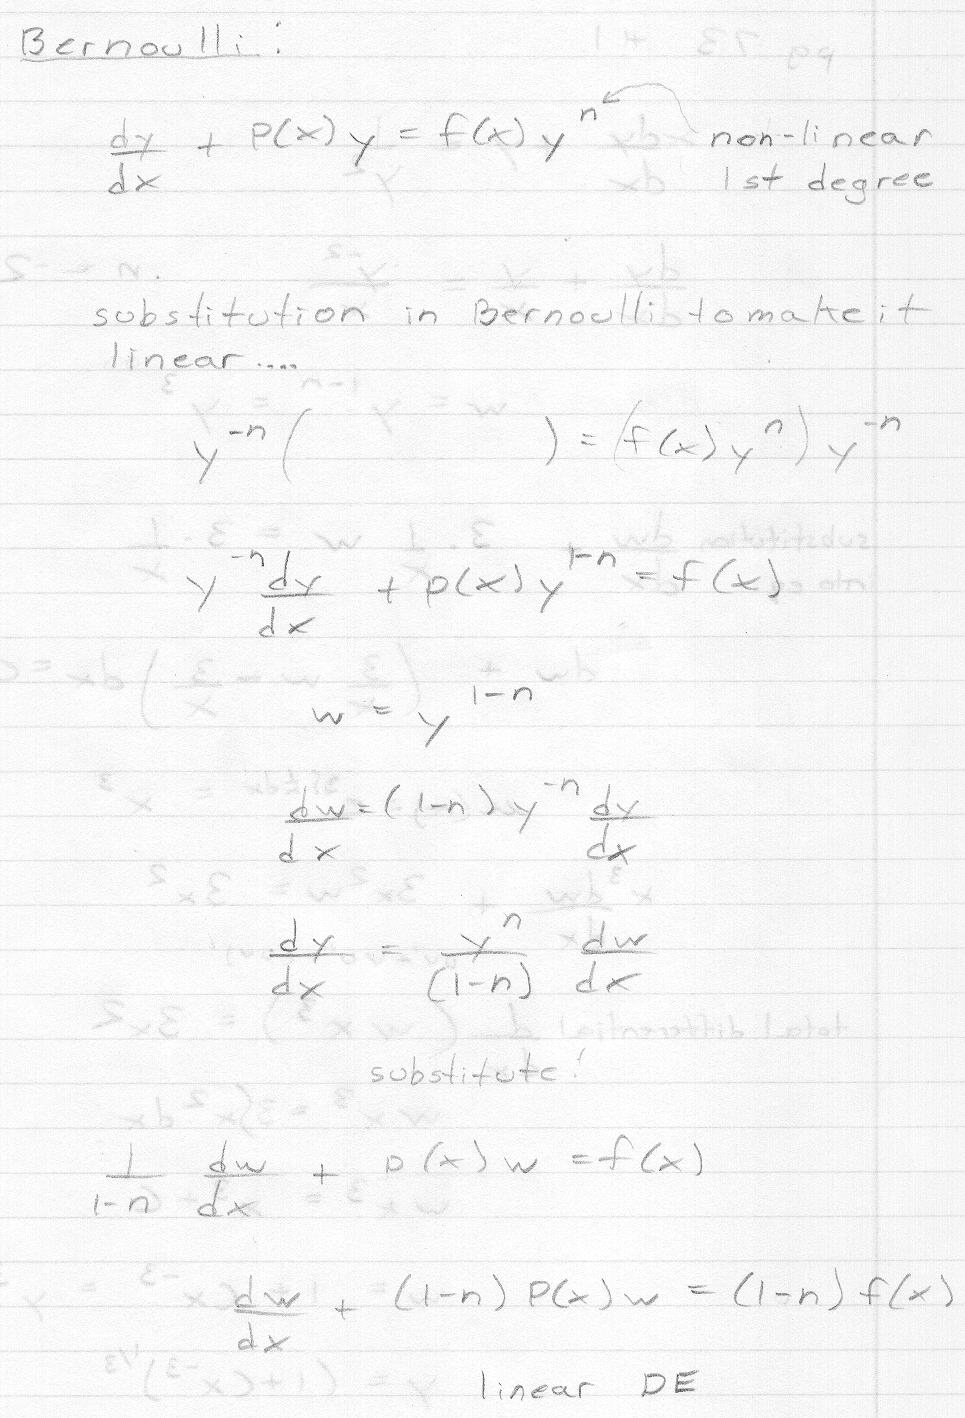 Bernoulli:
dy/dx + P(x) y = f(x) y^n non-linear
1st degree
substitution in Bernoulli to make it
linear ....
y^-n ( ) = (f(x) y^n) y^-n
y^-n dy/dx + p(x) y^1-n = f(x)
w = y^1-n
dw/dx = (1-n) y^-n dy/dx
dy/dx = y^n/(1-n) dw/dx
substitute!
1/1-n dw/dx + p(x) w = f(x)
dw/dx + (1-n) P(x) w = (1-n) f(x)
linear DE